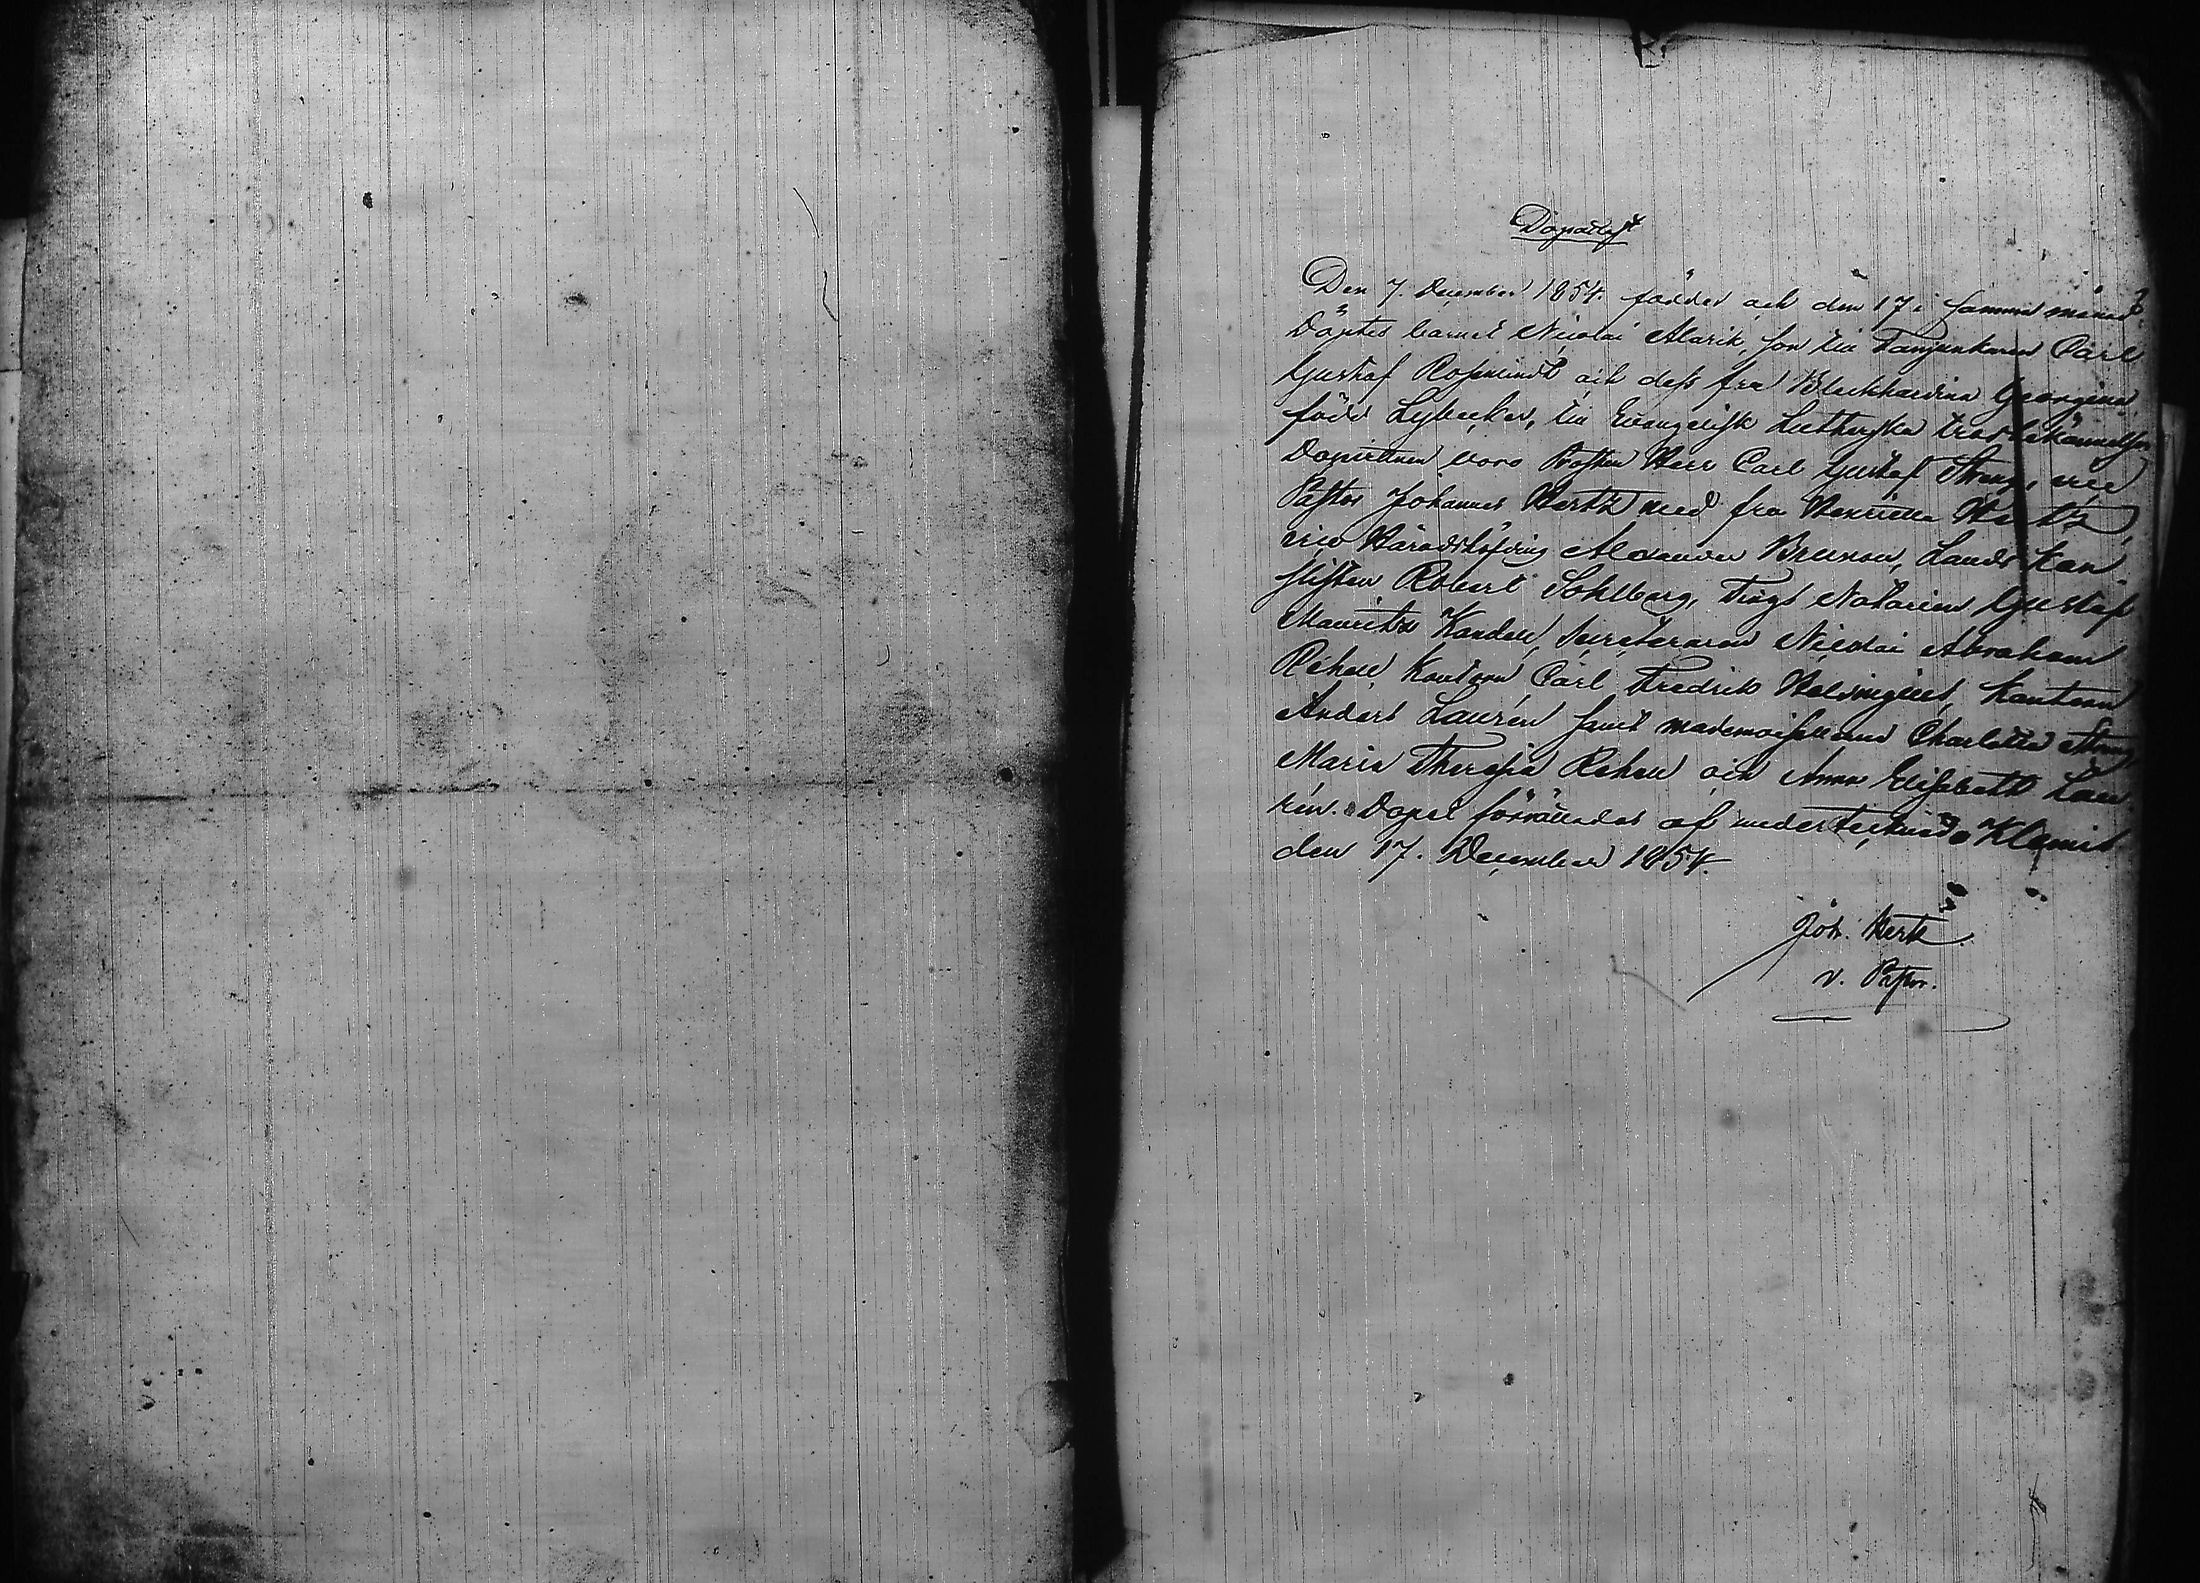 Dopattest
Den 7. December 1854. föddes och den 17 i samma månad
Döptes barnet Nicolai Alarik, son till Fanjunkaren Carl
Gustaf Rosmindt och dess fru Georgina
född Lybecker, till Evangelisk Lutherska trosbekännelsen
Dopvittnen voro Prosten Herr Carl Gustaf Streng, vice
Pastor Johannes Hertz med fru Henrietta Hertz,
vice Häradshöfding Alexander Brunou, Lands kan-
slisten Robert Sohlberg, Tings Notarien Gustaf
Mauritz Kandell, Secreteraren Nicolai Abraham
Rehell, Kantorn Carl Fredrik Helsingius, kantorn
Anders Laurén samt mademoisellerne Charlotta Streng,
Maria Theresia Rehell och Anna Elisabeth Lau-
rén. Dopet förrättades af undertecknad. Klemis
den 17. December 1854.
Joh. Hertz
v. Pastor.